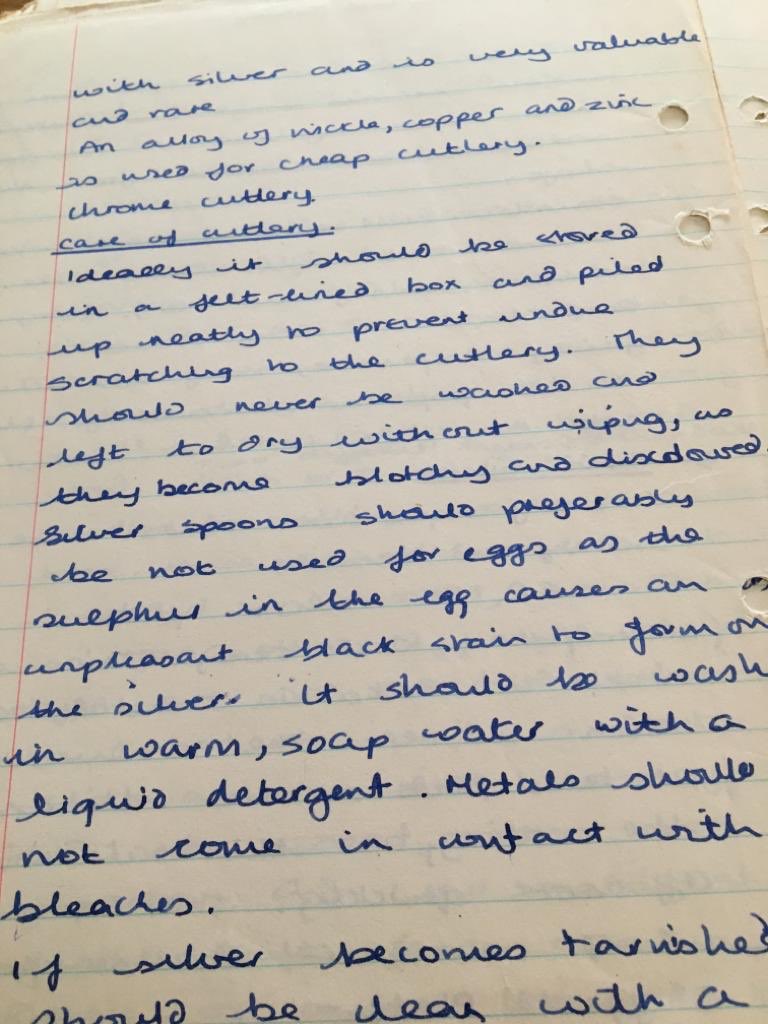 with silver and is very valuable
and rare
An alloy of nickle, copper and zinc
is used for cheap cutlery.
chrome cutlery.
care of cutlery.
Ideally it should be stored
in a felt-lined box and piled
up neatly to prevent undue
scratching to the cutlery. They
should never be washed and
left to dry without wiping, as
they become blotchy and discoloured.
Silver spoons should preferably
be not used for eggs as the
sulphur in the egg causes an
unpleasant black stain to form on
the silver. It should be wash
in warm, soap water with a
liquid detergent. Metals should
not come in contact with
bleaches.
If silver becomes tarnished
should be clean with a